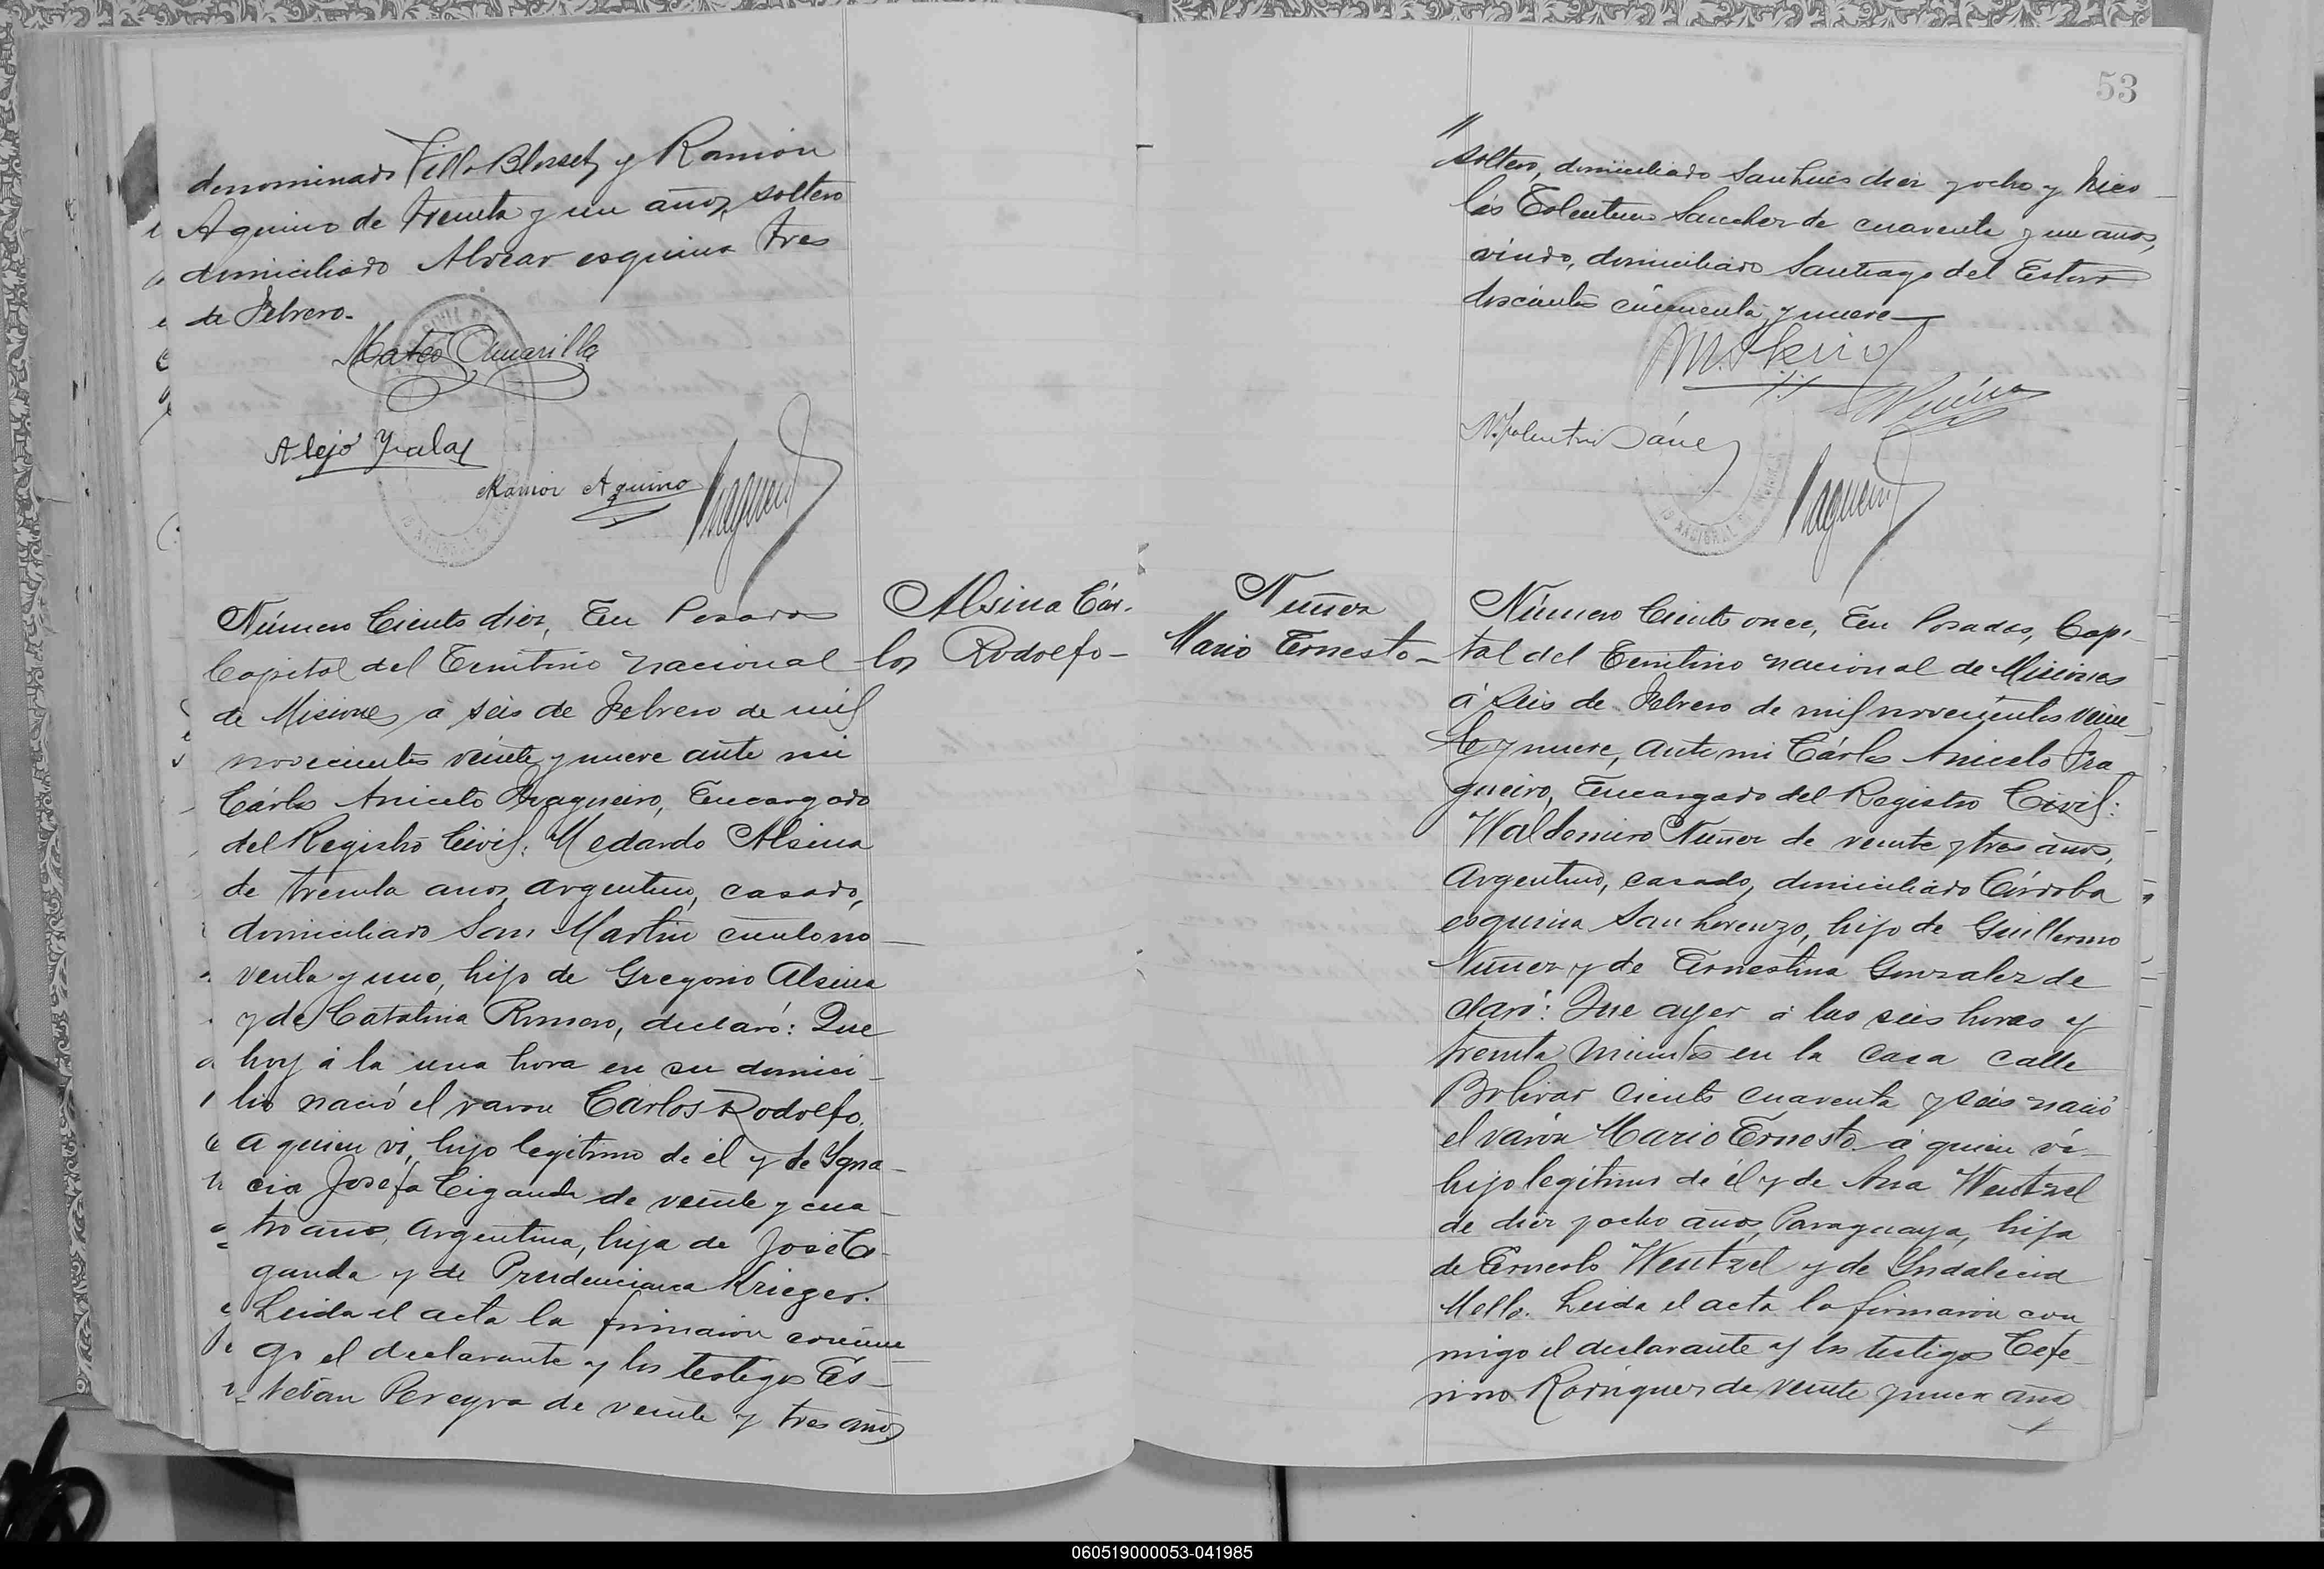 denominado Villa Blosset y Ramón
Aquino de treinta y un años, soltero
domiciliado Alvear esquina tres
de Febrero.
Mateo Amarilla
Alejo
Ramon Aquino
Número Ciento diez, En Posadas
Capital del Territorio nacional
de Misiones a seis de Febrero de mil
novecientos veinte y nueve ante mi
Cárlos Aniceto Fragueiro, Encargado
del Registro Civil: Medardo Alsina
de treinta años, argentino, casado,
domiciliado San Martin cientono
venta y uno, hijo de Gregorio Alsina
y de Catalina Romero, declaró: Que
hoy á la una hora en su domici
lio nació el varon Carlos Rodolfo.
a quien ví, hijo legitimo de él y de Ygna
cia Josefa Ciganda de veinte y cua
tro años, argentina, hija de José Ci
ganda y de Prudenciana Krieger.
Leida el acta la firmaron conmi
go el declarante y los testigos Es
teban Pereyra de veinte y tres años
Alsina Cár-
los Rodolfo-
53
//
soltero, domiciliado San Luis diez y ocho y Nico
lás Tolentino Sanchez de cuarenta y un años,
viudo, domiciliado Santiago del Estero
doscientos cincuenta y nueve
Nuñez
Mario Ernesto-
Número Ciento once, En Posadas, Capi
tal del Territorio nacional de Misiones
á seis de Febrero de mil novecientos vein
te y nueve, ante mi Cárlos Aniceto Fra
gueiro, Encargado del Registro Civil:
Waldomiro Nuñez de veinte y tres años,
argentino, casado, domiciliado Córdoba
esquina San Lorenzo, hijo de Guillermo
Nuñez y de Ernestina Gonzalez de
claró: Que ayer á las seis horas y
treinta minutos en la casa calle
Bolivar ciento cuarenta y seis nació
el varón Mario Ernesto á quien ví
hijo legítimo de él y de Ana Wentzel
de diez y ocho años, Paraguaya, hija
de Ernesto Wentzel y de Yndalecia
Mello. Leida el acta la firmaron con
migo el declarante y los testigos Cefe
rino Rodriguez de veinte y nueve años
060519000053-041985